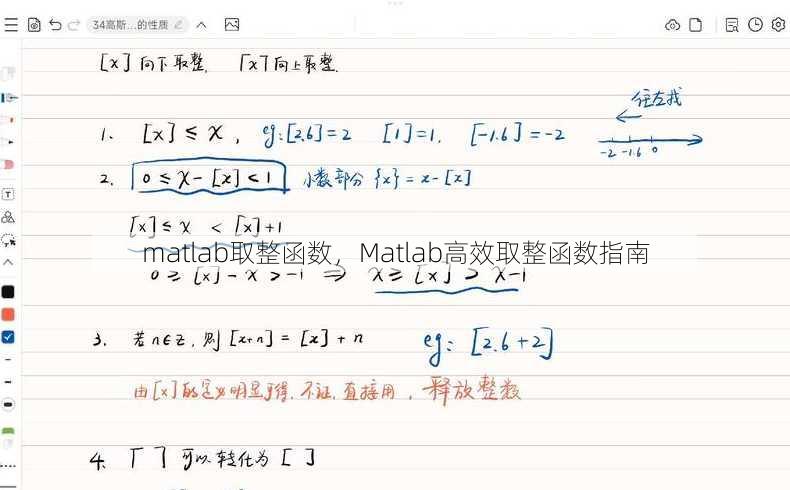 34高斯...的性质
[x]向下取整, ⌈x⌉向上取整.
往左找
1. [x] ≤ x, eg:[2.6]=2 [1]=1. [-1.6]=-2
-2 -1.6 0
2. 0 ≤ x-[x] < 1 小数部分 {x} = x-[x]
[x] ≤ x < [x]+1
matlab取整函数，Matlab高效取整函数指南
0 ≥ [x] - x > -1 ⇒ x ≥ [x] > x-1
3. 若 n∈Z, 则 [x+n] = [x] + n eg: [2.6+2]
由[x]的定义明显可得, 不证, 直接用, 释放整数
4. ⌈ ⌉ 可以转化为 [ ]